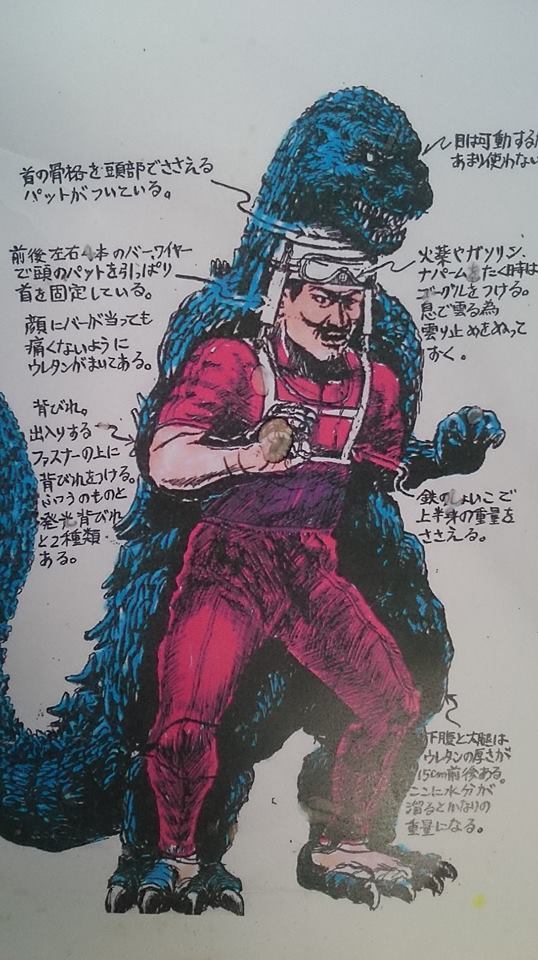 首の骨格を頭部でささえる
パットがついている。
目は可動する
あまり使わない
前後左右4本のバー、ワイヤー
で頭のパットを引っぱり
首を固定している。
顔にバーが当っても
痛くないように
ウレタンがまいてある。
火薬やガソリン、
ナパームをたく時は
ゴーグルをつける。
息で雲る為
雲り止めをぬって
おく。
背びれ。
出入りする
ファスナーの上に
背びれをつける。
ふつうのものと
発光背びれ
と2種類
ある。
鉄のしょいこで
上半身の重量を
ささえる。
下腹と大腿は
ウレタンの厚さが
15cm前後ある。
ここに水分が
溜るとかなりの
重量になる。